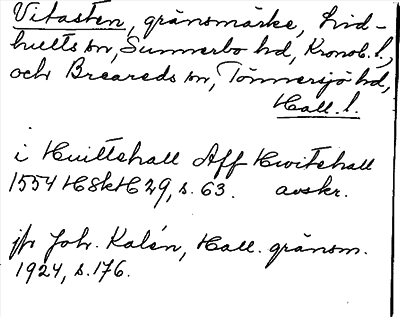 Vitasten, gränsmärke, Lind-
hults sn, Sunnerbo hd, Kronob. l.,
och Breareds sn, Tönnersjö hd,
Hall. l.
i Huittshall Aff Hwitshall
1554 H8kHC29, s. 63. avskr.
jfr Joh. Kalén, Hall. gränsm.
1924, s. 176.